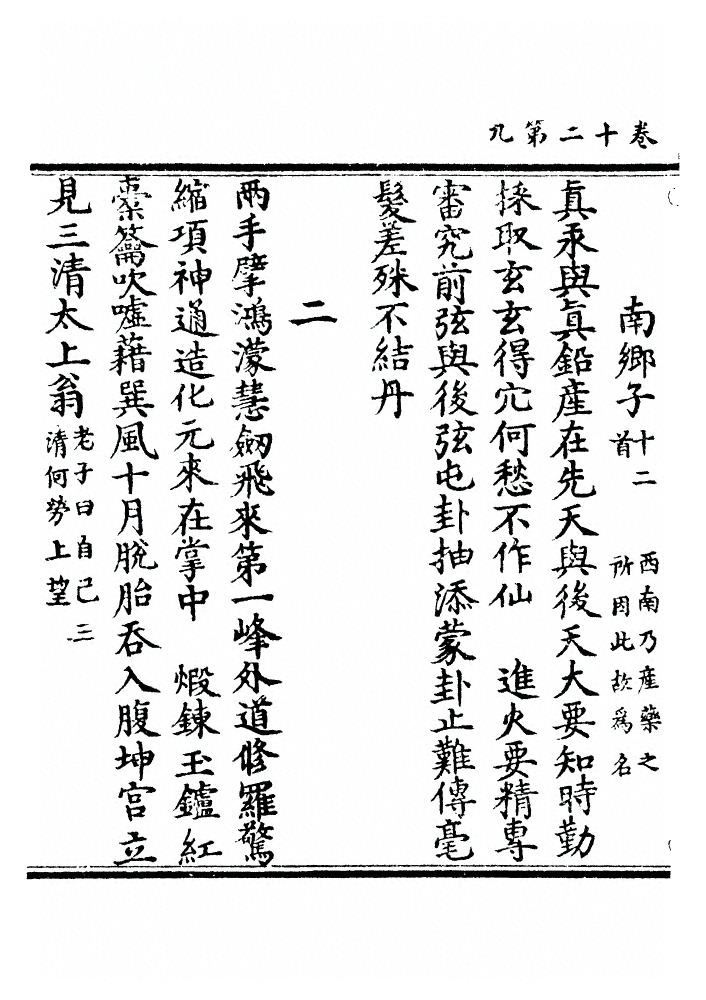 卷十二第九
南鄉子十二首 西南乃產藥之所因此故爲名
真汞與眞鉛産在先天與後天大要知時勤
採取玄玄得穴何愁不作仙 進火要精專
審究前弦與後弦屯卦抽添蒙卦止難傳毫
髮差殊不結丹
二
兩手擘鴻濛慧劒飛來第一峰外道修羅驚
縮項神通造化元來在掌中 煆鍊玉鑪紅
橐籥吹噓藉巽風十月脫胎吞入腹坤宫立
見三清太上翁老子曰自己三清何勞上望